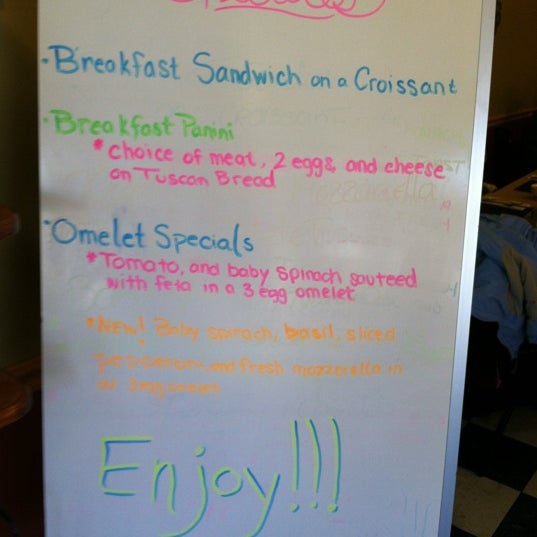 ·Breakfast Sandwich on a Croissant
·Breakfast Panini
*choice of meat, 2 eggs, and cheese
on Tuscan Bread
·Omelet Specials
*Tomato, and baby spinach sauteed
with feta in a 3 egg omelet
*New! Baby spinach, basil, sliced
pepperoni, and fresh mozzarella in
a 3 egg omelet
Enjoy!!!